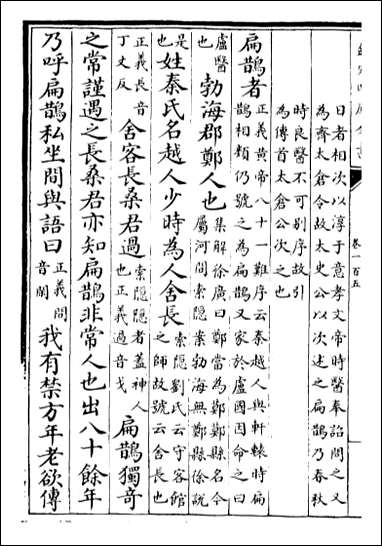 欽定四庫全書
卷一百五
日者相次以淳于意孝文帝時醫奉詔問之又
為齊太倉令故太史公以次述之扁鵲乃春秋
時良醫不可别序故引
為傳首太倉公次之也
扁鵲者正義黄帝八十一難序云秦越人與軒轅時扁鵲相類仍號之為扁鵲又家於盧國因命之曰
盧醫也勃海郡鄭人也集解徐廣曰鄭當為鄚鄚縣名今屬河間索隱案勃海無鄭縣徐說
是也姓秦氏名越人少時為人舍長索隱劉氏云守客館之師故號云舍長也
正義長音丁丈反舍客長桑君過索隱隱者蓋神人也正義過音戈扁鵲獨奇
之常謹遇之長桑君亦知扁鵲非常人也出入十餘年
乃呼扁鵲私坐間與語曰正義間音閑我有禁方年老欲傳